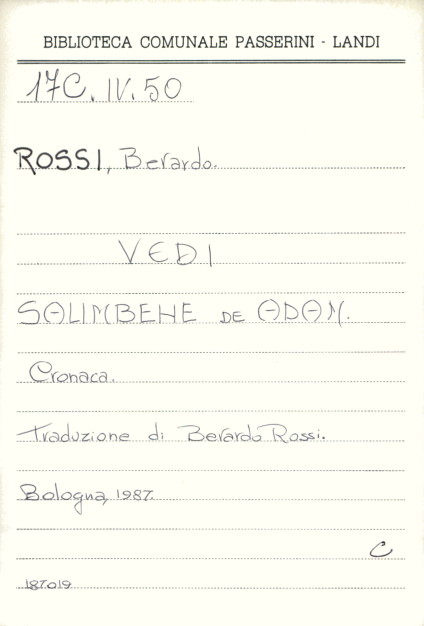 BIBLIOTECA COMUNALE PASSERINI - LANDI
17C.IV.50
ROSSI, Berardo.
VEDI
SALIMBENE DE ADAM.
Cronaca.
Traduzione di Berardo Rossi.
Bologna, 1987.
C
187019